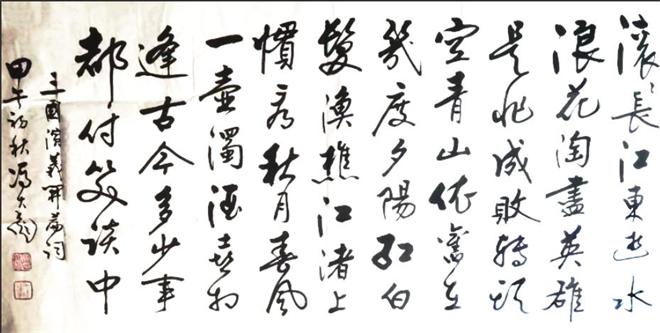 滚〻長江東逝水
浪花淘盡英雄
是非成敗轉頭
空青山依舊在
幾度夕陽紅白
髮漁樵江渚上
慣看秋月春風
一壺濁酒喜相
逢古今多少事
都付笑談中
三國演義開篇詞
甲午初秋馮